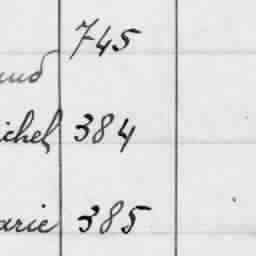 745
ichel 384
arie 385